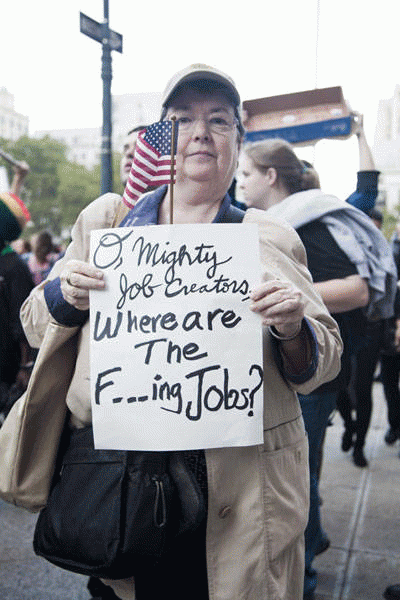 O, Mighty
Job Creators,
Where are
The
F_ _ _ing Jobs?